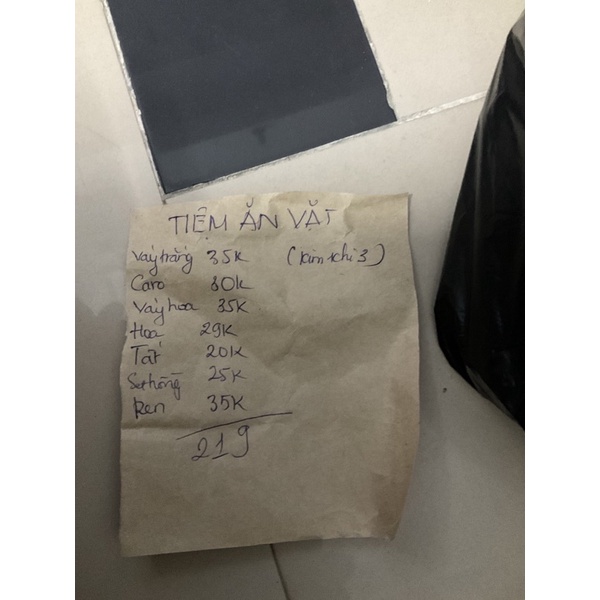 TIỆM ĂN VẶT
Váy trắng 35K (kim chi 3)
Caro
Váy hoa 35K
Hoa 29K
Tất 20K
Set hồng 25K
Ren 35K
219